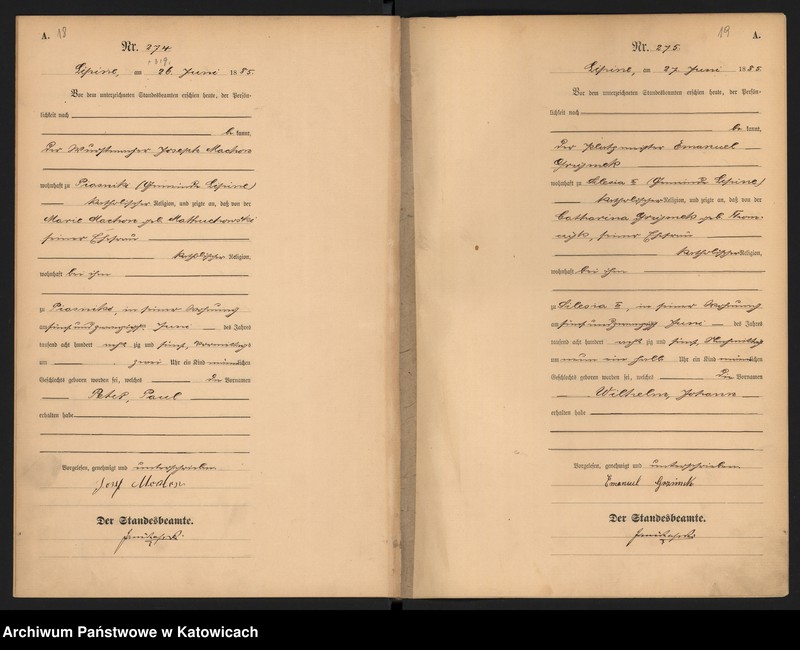 A. 18
Nr. 274.
Lipine, am 26. Juni 1885.
Vor dem unterzeichneten Standesbeamten erschien heute, der Persön-
lichkeit nach
be kannt,
der Joseph Machon
wohnhaft zu Piasniki (Gemeinde Lipine)
katholischer Religion, und zeigte an, daß von der
Marie Machon geb.
seiner Ehefrau
katholischer Religion,
wohnhaft bei ihm
zu Piasniki, in seiner Wohnung
am fünf und zwanzigsten Juni des Jahres
tausend acht hundert acht zig und fünf, Vormittags
um zwei Uhr ein Kind männlichen
Geschlechts geboren worden sei, welches die Vornamen
Peter, Paul
erhalten habe
Vorgelesen, genehmigt und unterschrieben
Der Standesbeamte.
19 A.
Nr. 275.
Lipine, am 27. Juni 1885.
Vor dem unterzeichneten Standesbeamten erschien heute, der Persön-
lichkeit nach
be kannt,
der Platzmeister Emanuel
wohnhaft zu Silesia (Gemeinde Lipine)
katholischer Religion, und zeigte an, daß von der
Catharina geb.
seiner Ehefrau
katholischer Religion,
wohnhaft bei ihm
zu Silesia, in seiner Wohnung
am fünf und zwanzigsten Juni des Jahres
tausend acht hundert acht zig und fünf, Nachmittags
um neun ein halb Uhr ein Kind männlichen
Geschlechts geboren worden sei, welches die Vornamen
Wilhelm, Johann
erhalten habe
Vorgelesen, genehmigt und unterschrieben
Emanuel
Der Standesbeamte.
Archiwum Państwowe w Katowicach